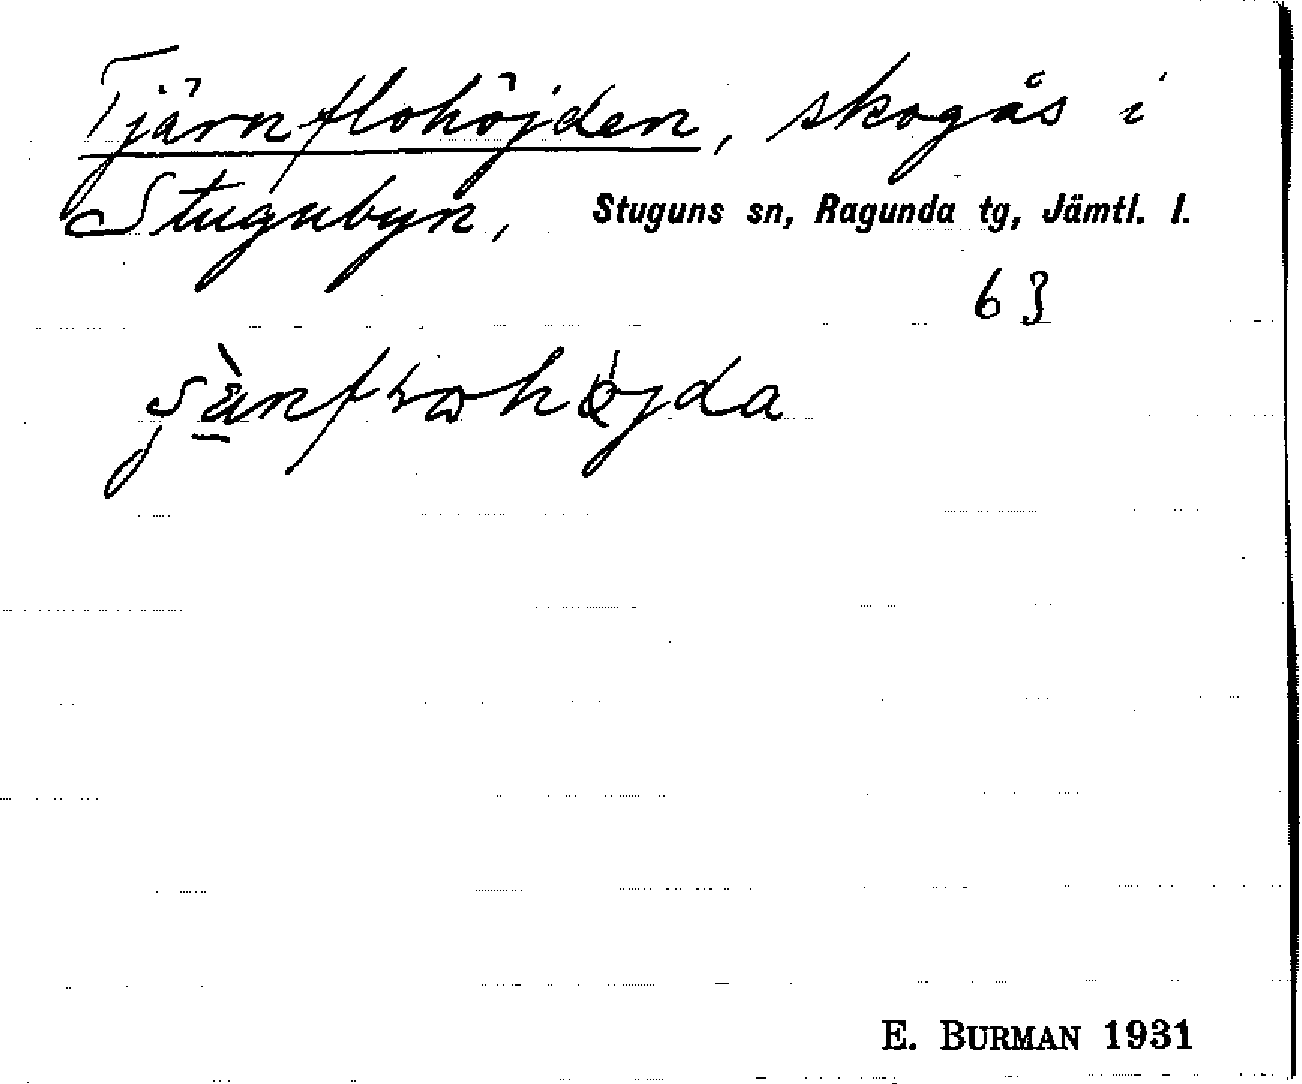 Tjärnflohöjden, skogås i
Stugubyn, Stuguns sn, Ragunda tg, Jämtl. l.
63
E. BURMAN 1931